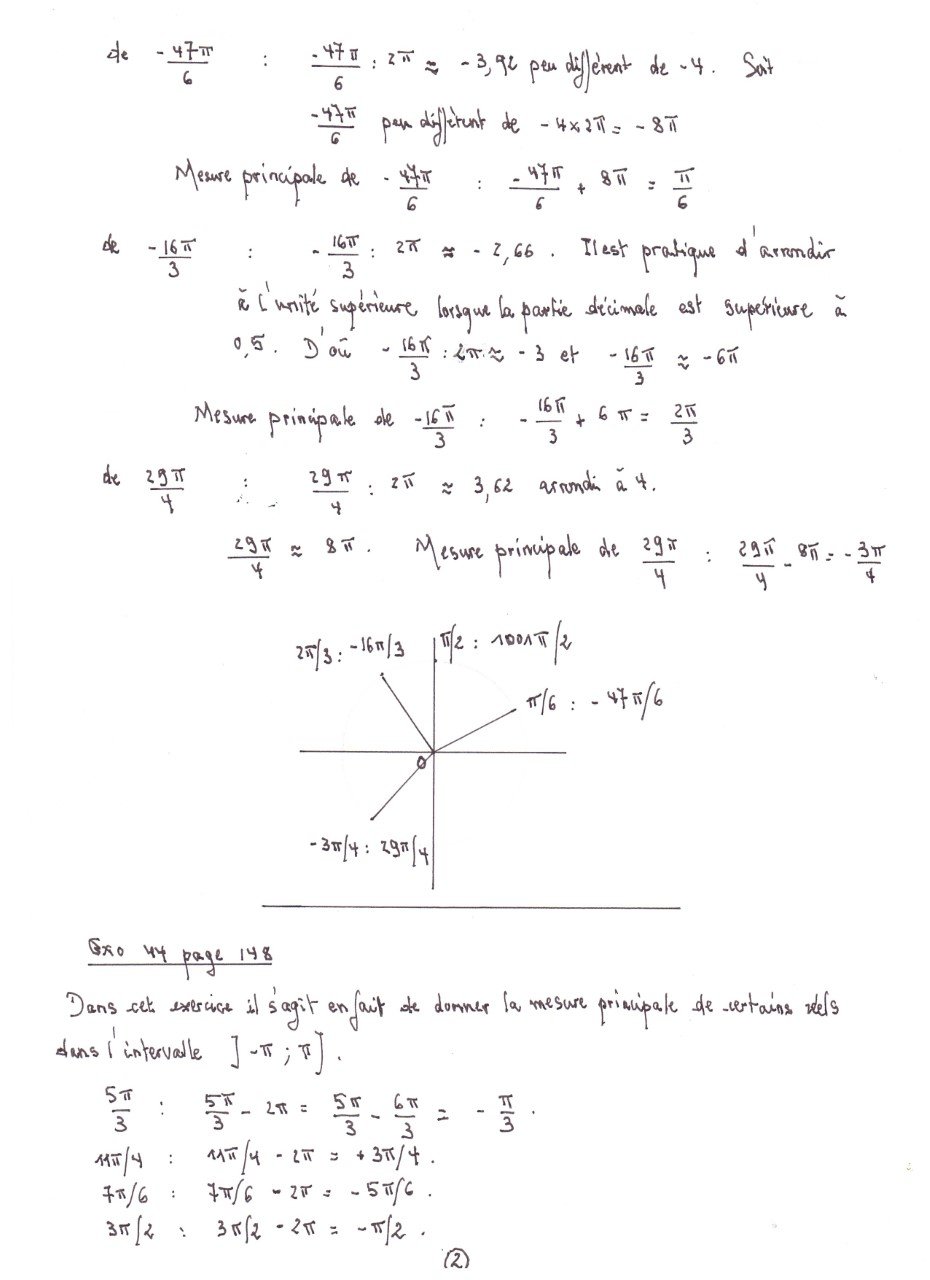 de -47π/6 : -47π/6 : 2π ≈ -3,92 peu différent de -4. Soit
-47π/6 peu différent de -4×2π = -8π
Mesure principale de -47π/6 : -47π/6 + 8π = π/6
de -16π/3 : -16π/3 : 2π ≈ -2,66. Il est pratique d'arrondir
à l'unité supérieure lorsque la partie décimale est supérieure à
0,5. D'où -16π/3 : 2π ≈ -3 et -16π/3 ≈ -6π
Mesure principale de -16π/3 : -16π/3 + 6π = 2π/3
de 29π/4 : 29π/4 : 2π ≈ 3,62 arrondi à 4.
29π/4 ≈ 8π. Mesure principale de 29π/4 : 29π/4 - 8π = -3π/4
2π/3 : -16π/3
π/2 : 1001π/2
π/6 : -47π/6
O
-3π/4 : 29π/4
Exo 44 page 148
Dans cet exercice il s'agit en fait de donner la mesure principale de certains réels
dans l'intervalle ]-π ; π].
5π/3 : 5π/3 - 2π = 5π/3 - 6π/3 = -π/3.
11π/4 : 11π/4 - 2π = +3π/4.
7π/6 : 7π/6 - 2π = -5π/6.
3π/2 : 3π/2 - 2π = -π/2.
(2)